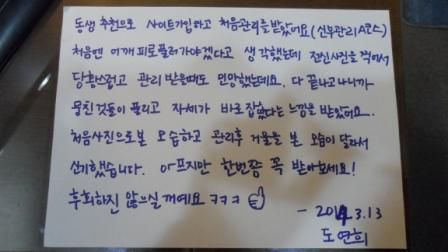 동생 추천으로 사이트가입하고 처음관리를 받았어요 (신부관리 A코스)
처음엔 어깨 피로풀러가야겠다고 생각했는데 전신사진을 찍어서
당황스럽고 관리 받을때도 민망했는데요. 다 끝나고나니까
뭉친것들이 풀리고 자세가 바로 잡혔다는 느낌을 받았어요.
처음사진으로본 모습하고 관리후 거울을 본 모습이 달라서
신기했습니다. 아프지만 한번쯤 꼭 받아보세요!
후회하진 않으실 꺼예요 ㅋㅋㅋ
- 2014.3.13
도연희